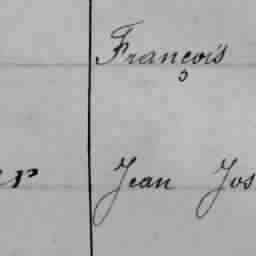 François
er Jean Jos